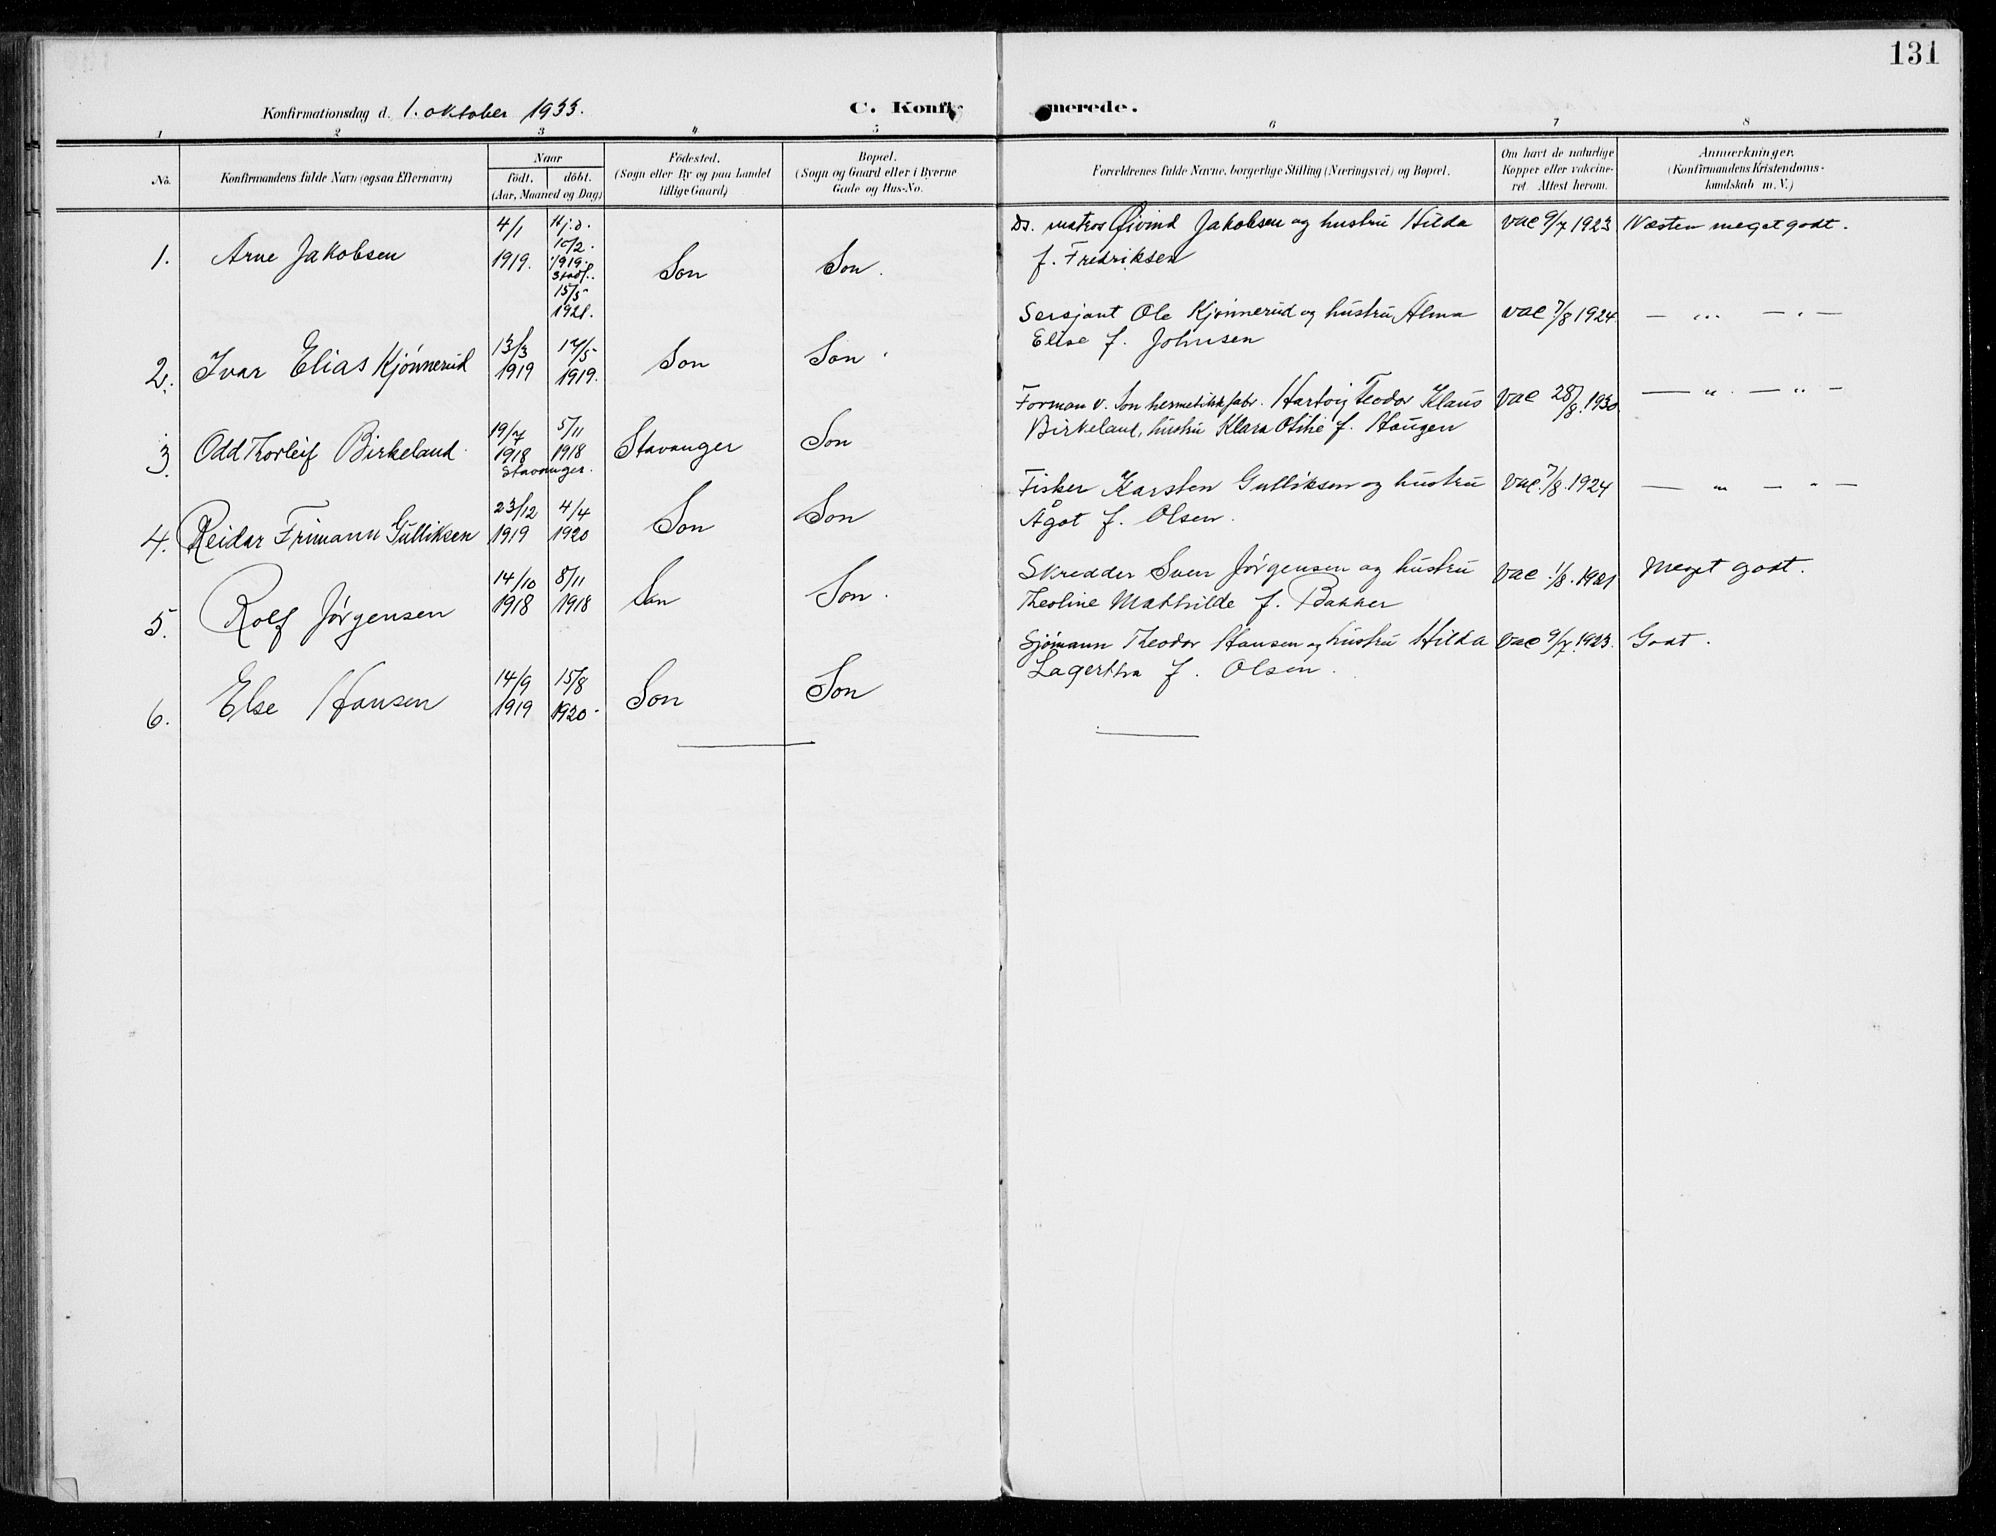 131
Konfirmationsdag d. 1. oktober 1933.
C. Konfi merede.
1 2 3 4 5 6 7 8
No.
Konfirmandens fulde Navn (ogsaa Efternavn)
Naar
födt. döbt.
(Aar, Maaned og Dag)
Födested.
(Sogn eller By og paa Landet
tillige Gaard)
Bopæl.
(Sogn og Gaard eller i Byerne
Gade og Hus-No.
Forældrenes fulde Navne, borgerlige Stilling (Næringsvei) og Bopæl.
Om havt de naturlige
Kopper eller vakcine-
ret. Attest herom.
Anmærkninger.
(Konfirmandens Kristendoms-
kundskab m. V.)
1. Arne Jakobsen
4/1
1919.
Hj.d.
10/2.
1919.
Stadf.
15/5
1921.
Son
Son.
Ds. matros Øivind Jakobsen og hustru Hilda
f. Fredriksen
vac 9/7 1923
Næsten meget godt.
2. Ivar Elias Kjönnerud
13/3
1919
17/5
1919.
Son
Son
Sersjant Ole Kjönnerud og hustru Alma
Elise f. Johnsen
vac 7/8 1924
— " — " —
3. Odd Thorleif Birkeland
19/7
1918
5/11
1918
Stavanger.
Stavanger
Son
Forman v. Son hermetikkfabr. Hartvig Teodor Klaus
Birkeland, hustru Klara Otilie f. Haugen
vac 28/8. 1930
— " — " —
4. Reidar Frimann Gulliksen
23/12
1919
4/4
1920
Son
Son
Fisker Karsten Gulliksen og hustru
Ågot f. Olsen.
vac. 7/8. 1924
— " — " —
5. Rolf Jørgensen
14/10
1918
8/11
1918
Son
Son.
Skredder Sven Jørgensen og hustru
Theoline Mathilde f. Bakker
vac 1/8. 1921
Meget godt.
6. Else Hansen
14/9
1919
15/8
1920
Son
Son
Sjömann Theodor Hansen og hustru Hilda
Lagertha f. Olsen.
vac 9/7. 1923.
Godt.